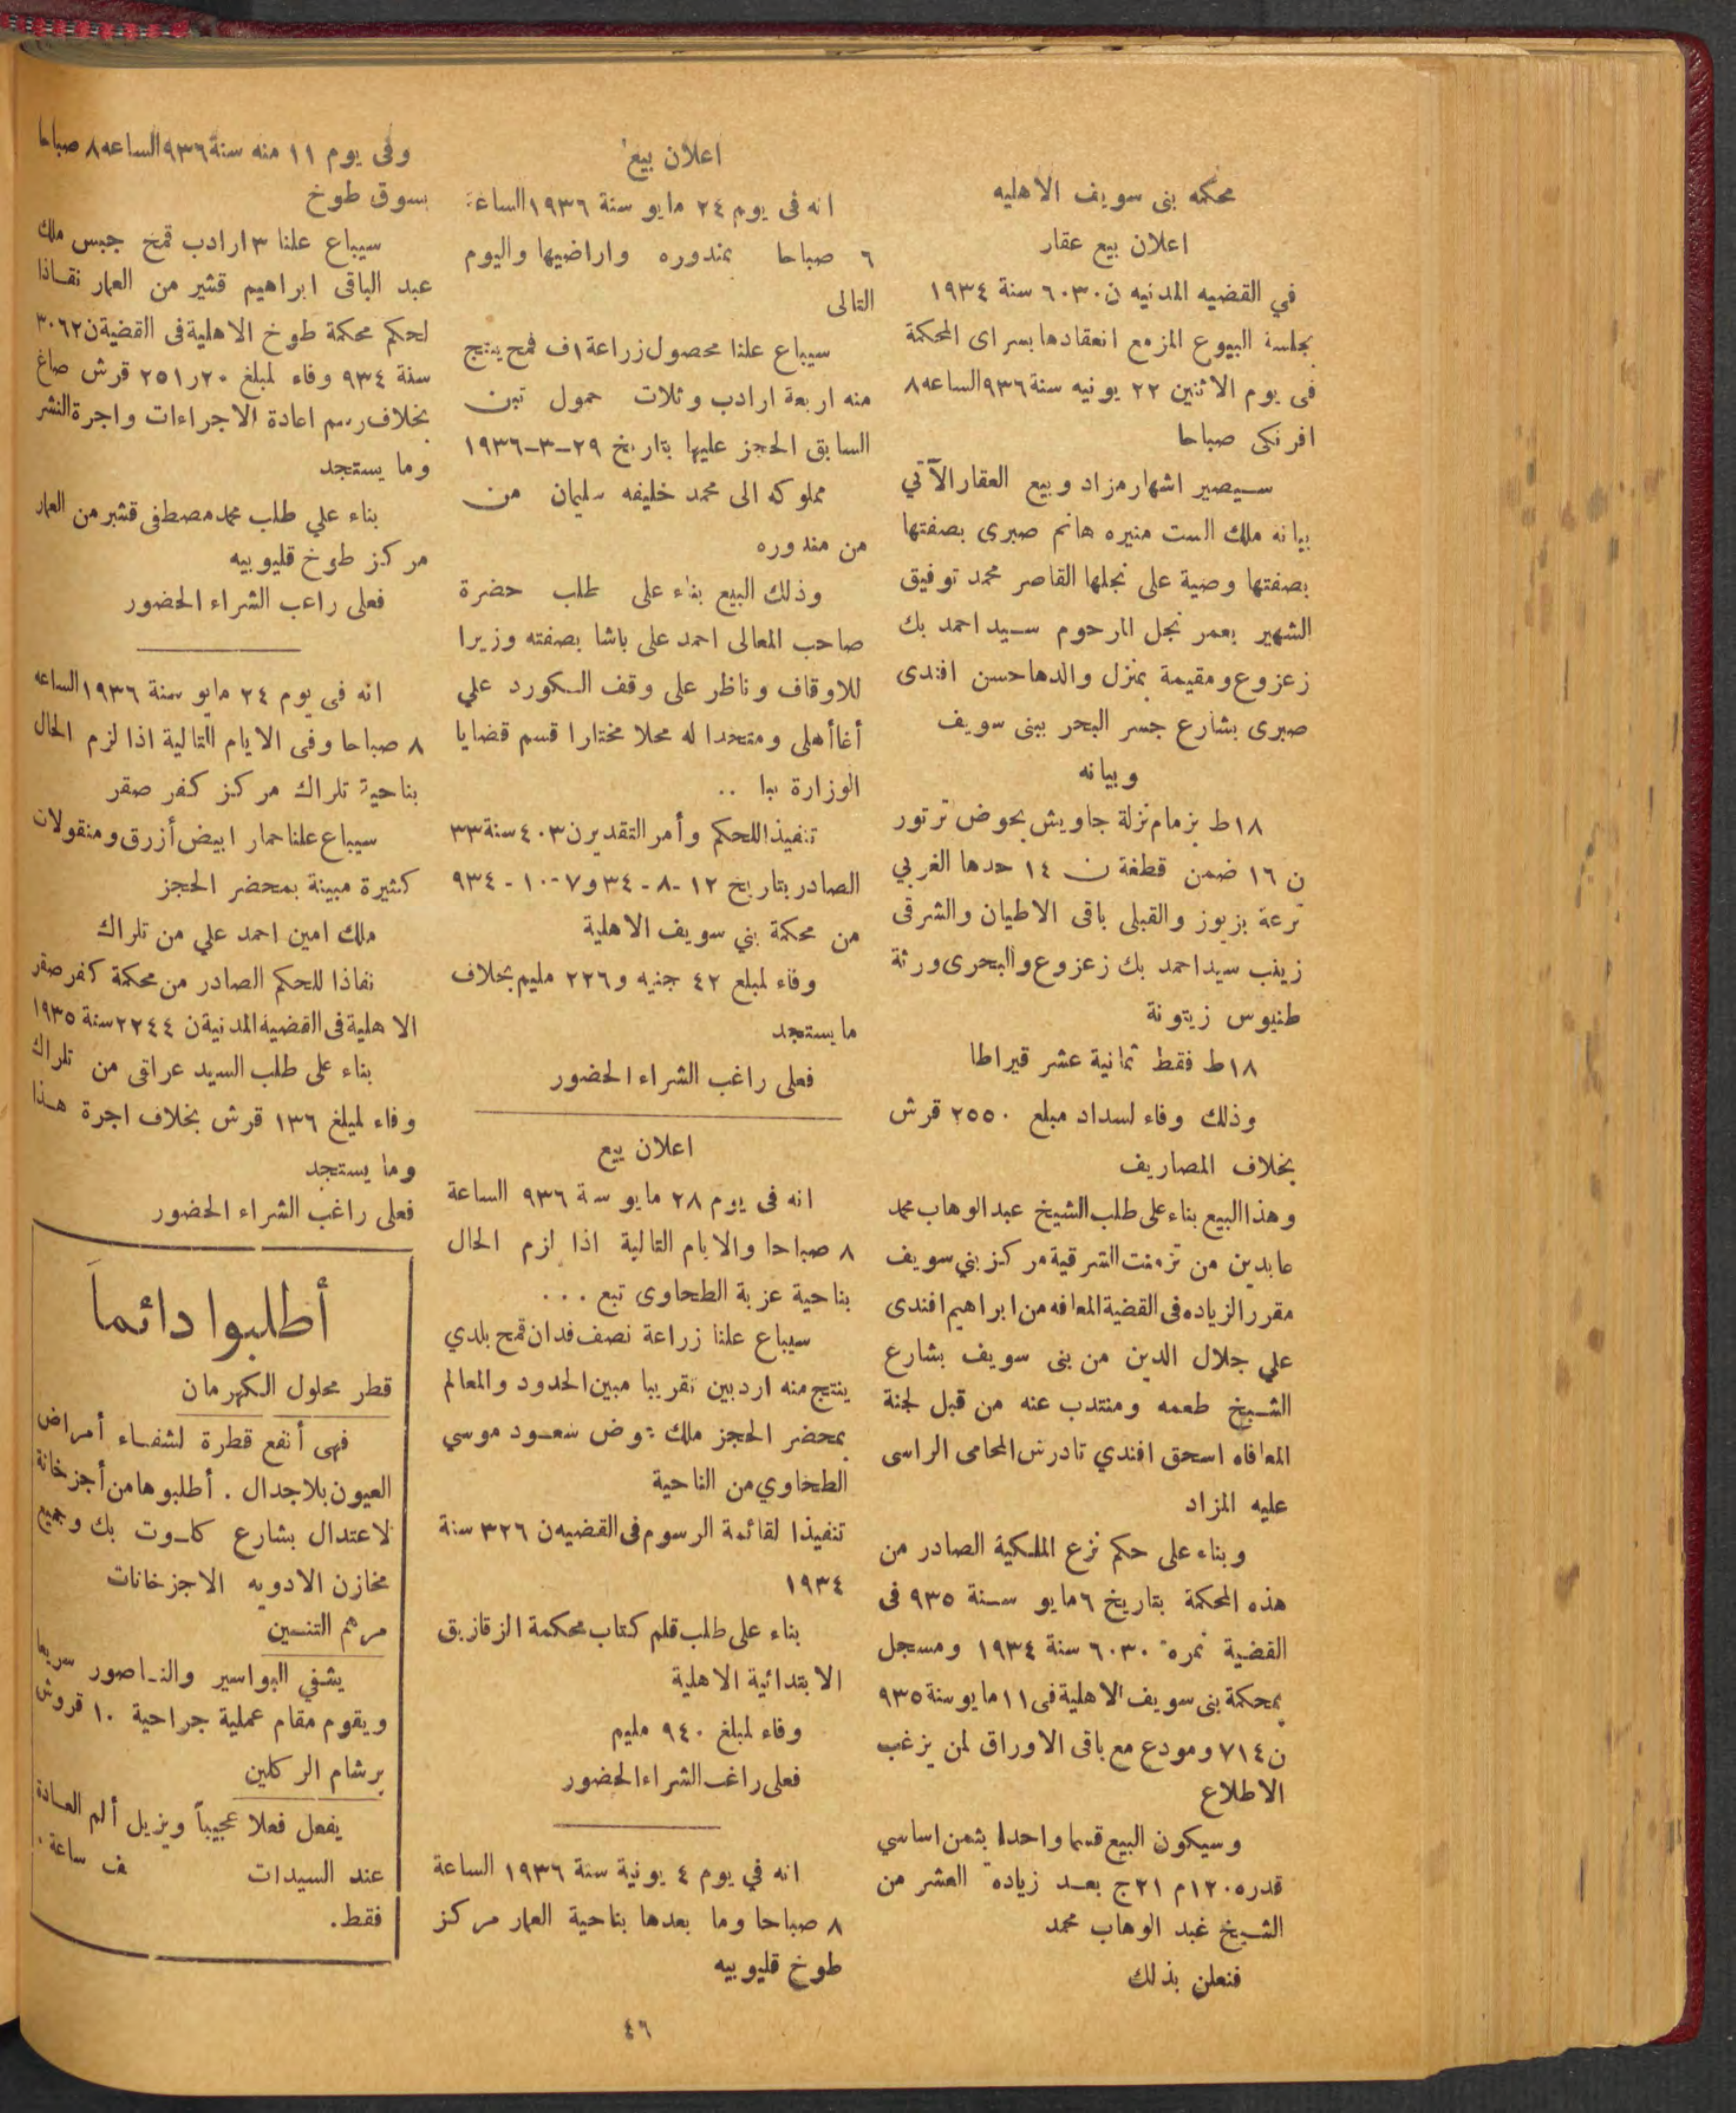 محكمه بنى سويف الاهليه
اعلان بيع عقار
في القضيه المدنيه ن ٦٠٣٠ سنة ١٩٣٤
بجلسة البيوع المزمع انعقادها بسراى المحكمة
فى يوم الاثنين ٢٢ يونيه سنة ٩٣٦ الساعه ٨
افرنكى صباحا
سيصير اشهار مزاد وبيع العقار الآتي
بيانه ملك الست منيره هانم صبرى بصفتها
بصفتها وصية على نجلها القاصر محمد توفيق
الشهير بعمر نجل المرحوم سيد احمد بك
زعزوع ومقيمة بمنزل والدها حسن افندى
صبرى بشارع جسر البحر ببنى سويف
وبيانه
١٨ ط بزمام نزلة جاويش بحوض ترتور
ن ١٦ ضمن قطغة ن ١٤ حدها الغربي
ترعة بزبوز والقبلى باقى الاطيان والشرقى
زينب سيد احمد بك زعزوع والبحرى ورثة
طنيوس زيتونة
١٨ ط فقط ثمانية عشر قيراطا
وذلك وفاء لسداد مبلغ ٢٥٥٠ قرش
بخلاف المصاريف
وهذا البيع بناء على طلب الشيخ عبد الوهاب محمد
عابدين من تزمنت الشرقية مركز بني سويف
مقرر الزياده فى القضية المعافه من ابراهيم افندى
علي جلال الدين من بنى سويف بشارع
الشيخ طعمه ومنتدب عنه من قبل لجنة
المعافاه اسحق افندي تادرس المحامى الراسى
عليه المزاد
وبناء على حكم نزع الملكية الصادر من
هذه المحكمة بتاريخ ٦ مايو سنة ٩٣٥ فى
القضية نمرة ٦٠٣٠ سنة ١٩٣٤ ومسجل
بمحكمة بنى سويف الاهلية فى ١١ مايو سنة ٩٣٥
ن ٧١٤ ومودع مع باقى الاوراق لمن يزغب
الاطلاع
وسيكون البيع قسما واحدا بثمن اساسي
قدره ١٢٠م ٢١ج بعد زيادة العشر من
الشيخ غبد الوهاب محمد
فنعلن بذلك
اعلان بيع
انه فى يوم ٢٤ مايو سنة ١٩٣٦ الساعة
٦ صباحا بمندوره واراضيها واليوم
التالى
سيباع علنا محصول زراعة ١ف قمح ينتج
منه اربعة ارادب وثلاث حمول تبن
السابق الحجز عليها بتاريخ ٢٩-٣-١٩٣٦
مملوكه الى محمد خليفه سليمان من
من مندوره
وذلك البيع بناء على طلب حضرة
صاحب المعالى احمد على باشا بصفته وزيرا
للاوقاف وناظر على وقف السكورد علي
أغا أهلى ومتخدا له محلا مختارا قسم قضايا
الوزارة ببا ..
تنفيذا للحكم وأمر التقدير ن ٤٠٣ سنة ٣٣
الصادر بتاريخ ١٢-٨-٣٤ و٧-١٠-٩٣٤
من محكمة بني سويف الاهلية
وفاء لمبلع ٤٢ جنيه و٢٢٦ مليم بخلاف
ما يستجد
فعلى راغب الشراء الحضور
اعلان بيع
انه فى يوم ٢٨ مايو سنة ٩٣٦ الساعة
٨ صباحا والايام التالية اذا لزم الحال
بناحية عزبة الطحاوى تبع ...
سيباع علنا زراعة نصف فدان قمح بلدي
ينتج منه اردبين تقريبا مبين الحدود والمعالم
بمحضر الحجز ملك عوض سعود موسي
الطحاوي من الناحية
تنفيذا لقائمة الرسوم فى القضيه ن ٣٢٦ سنة
١٩٣٤
بناء على طلب قلم كتاب محكمة الزقازيق
الابتدائية الاهلية
وفاء لمبلغ ٩٤٠ مليم
فعلى راغب الشراء الحضور
انه في يوم ٤ يونية سنة ١٩٣٦ الساعة
٨ صباحا وما بعدها بناحية العمار مركز
طوخ قليوبيه
وفى يوم ١١ منه سنة ٩٣٦ الساعه ٨ صباحا
بسوق طوخ
سيباع علنا ٣ ارادب قمخ جبس ملك
عبد الباقى ابراهيم قشير من العمار نقاذا
لحكم محكمة طوخ الاهلية فى القضية ن ٣٠٦٢
سنة ٩٣٤ وفاء لمبلغ ٢٠ر٢٥١ قرش صاغ
بخلاف رسم اعادة الاجراءات واجرة النشر
وما يستجد
بناء علي طلب محمد مصطفى قشير من العمار
مركز طوخ قليوبيه
فعلى راعب الشراء الحضور
انه فى يوم ٢٤ مايو سنة ١٩٣٦ الساعه
٨ صباحا وفى الايام التالية اذا لزم الحال
بناحية تلراك مركز كفر صقر
سيباع علنا حمار ابيض أزرق ومنقولات
كثيرة مبينة بمحضر الحجز
ملك امين احمد علي من تلراك
نفاذا للحكم الصادر من محكمة كفر صقر
الاهلية فى القضية المدنية ن ٢٢٤٤ سنة ١٩٣٥
بناء على طلب السيد عراقى من تلراك
وفاء لمبلغ ١٣٦ قرش بخلاف اجرة هذا
وما يستجد
فعلى راغب الشراء الحضور
أطلبوا دائماً
قطر محلول الكهرمان
فهى أنفع قطرة لشفاء أمراض
العيون بلا جدال . أطلبوها من أجزخانة
لاعتدال بشارع كلوت بك وجميع
مخازن الادويه الاجزخانات
مرهم التنسين
يشفي البواسير والناصور سريعا
ويقوم مقام عملية جراحية ١٠ قروش
برشام الركلين
يفعل فعلا عجيباً ويزيل ألم العادة
عند السيدات ف ساعة
فقط.
٤٦